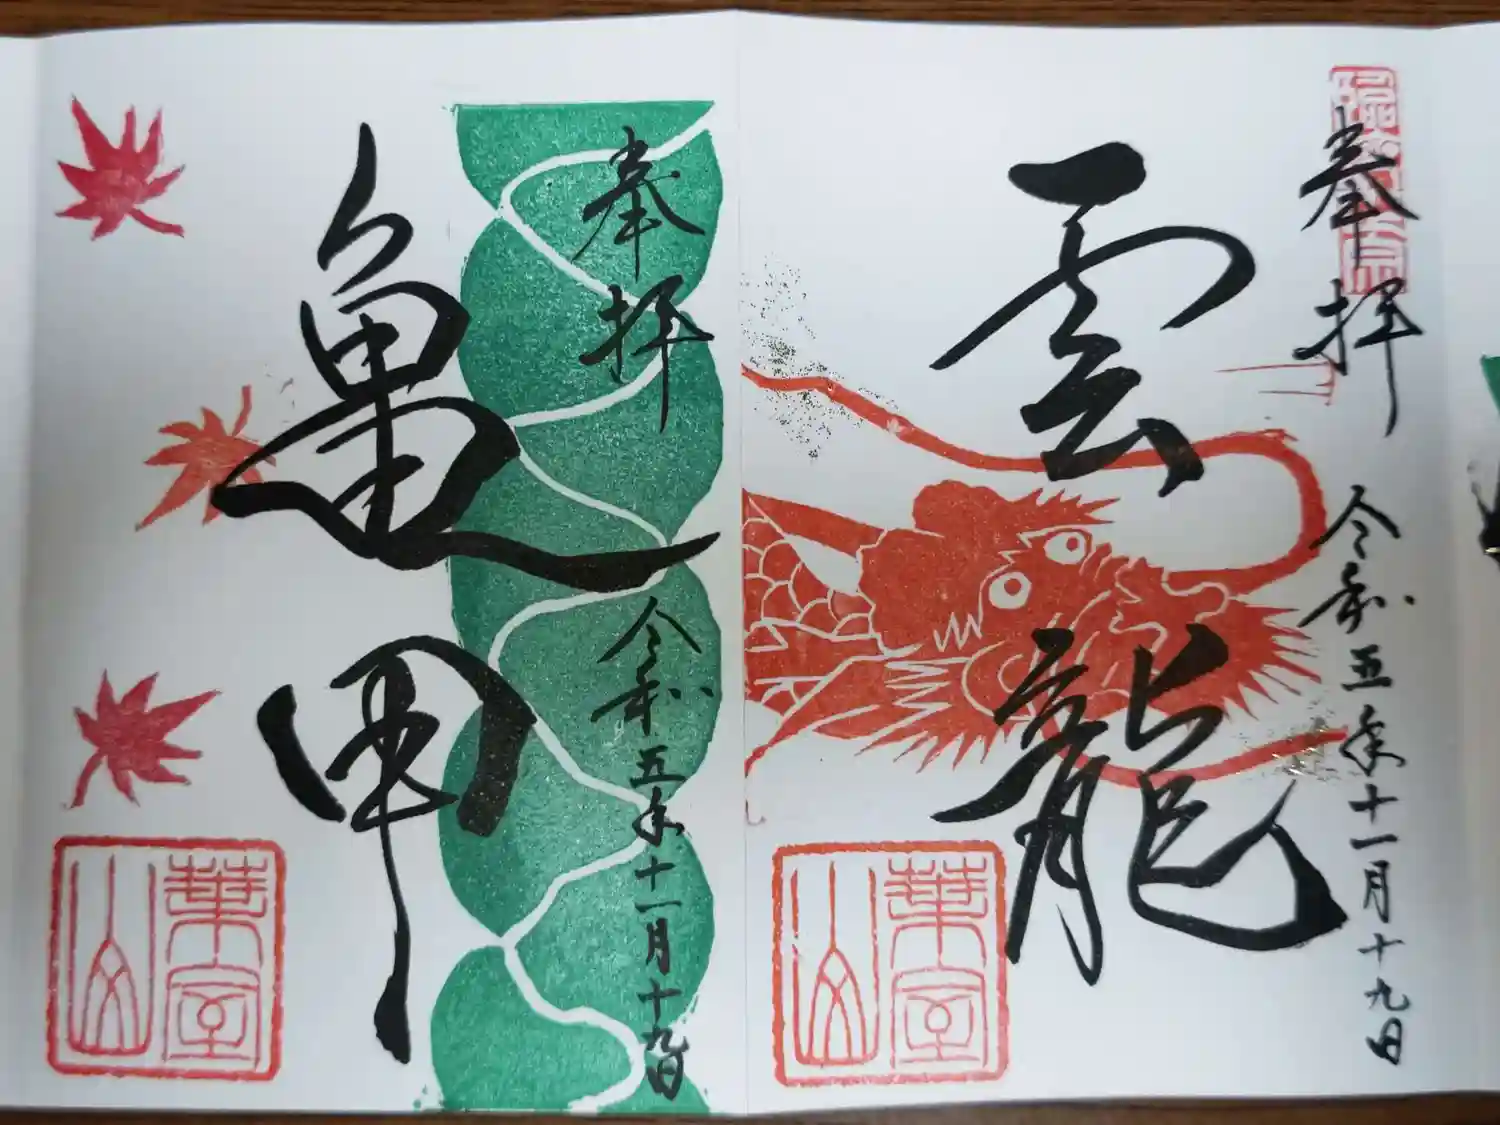 奉拝
令和五年十一月十九日
雲龍
葉室山
奉拝
令和五年十一月十九日
亀甲
葉室山